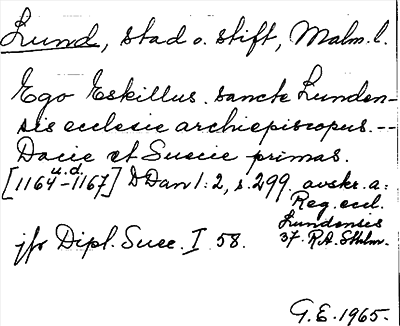 Lund, stad o. stift, Malm. l.
Ego Eskillus. sancte Lunden-
sis ecclesie archiepiscopus. --
Dacie et Suecie primas.
u.d.
[1164-1167] DDan 1:2, s. 299. avskr. a:
Reg. eccl.
Lundensis
jfr Dipl. Suec. I 58. 37. R.A. Sthlm.
G.E. 1965.